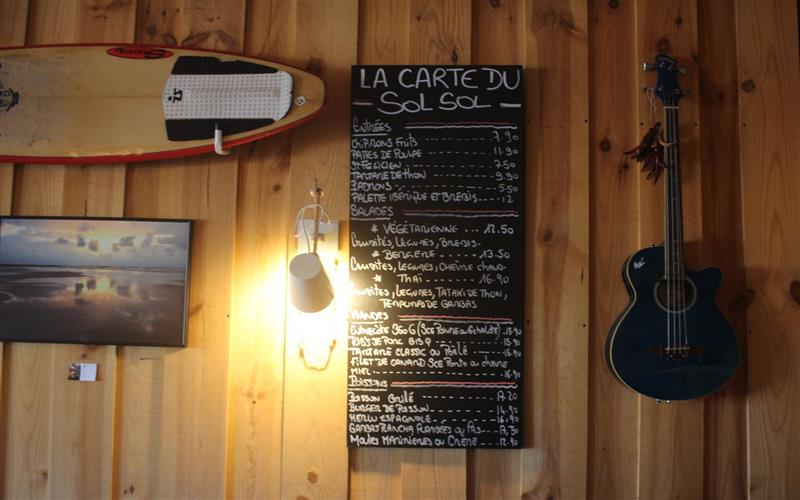 LA CARTE DU
SOL SOL
ENTRÉES
CHIPIRONS FRITS 7.90
PATTES DE POULPE 11.90
ST FELICIEN 7.50
TARTARE DE THON 9.90
PADRONS 5.50
PALETTE IBÉRIQUE ET BREBIS 12
SALADES
* VÉGÉTARIENNE 12.50
CRUDITÉS, LÉGUMES, BREBIS
* BERGERE 13.50
CRUDITÉS, LÉGUMES, CHÈVRE CHAUD
* THAI 16.90
CRUDITÉS, LÉGUMES, TATAKI DE THON,
TEMPURAS DE GAMBAS
VIANDES
ENTRECÔTE 350G (SCE POIVRE OU ECHALOTE)
RIBS DE PORC BBQ
TARTARE CLASSIC OU POÊLÉ 16.90
FILET DE CANARD SCE PORTO OU CHÈVRE
MIEL
POISSONS
POISSON GRILLÉ
BURGER DE POISSON 14.90
MERLU ESPAGNOLE 16.90
GAMBAS PLANCHA FLAMBÉES OU PAS
MOULES MARINIÈRES OU CRÈME 12.90